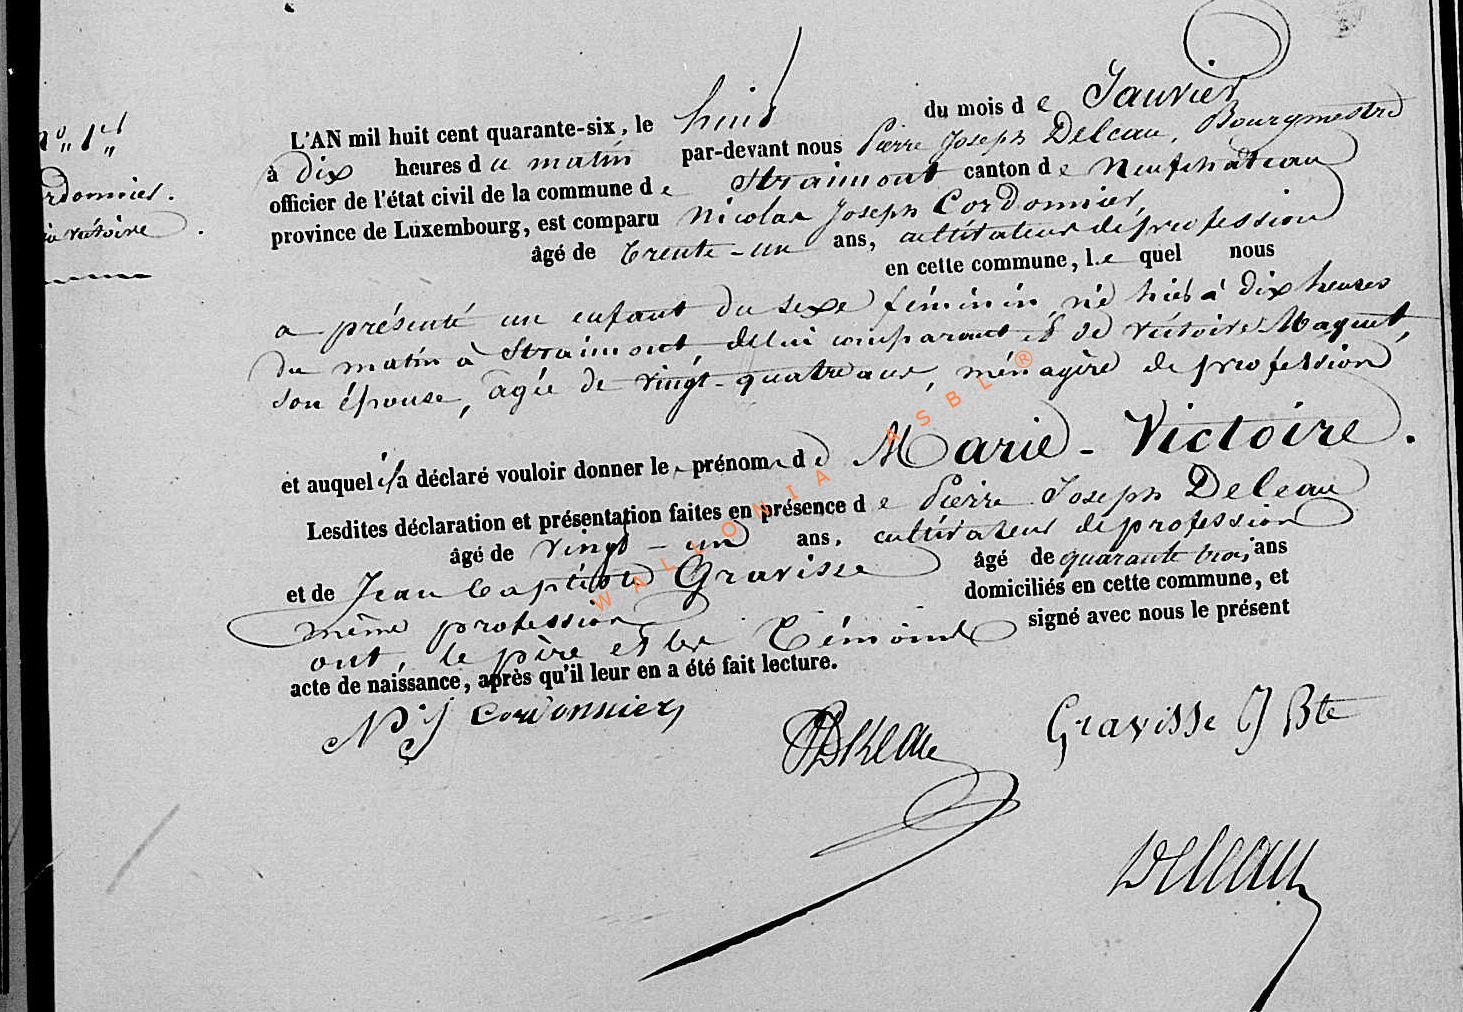 N° 1er
rdonnier.
ie victoire.
L'AN mil huit cent quarante-six, le huit du mois de Janvier
à dix heures du matin par-devant nous Pierre Joseph Deleau, Bourgmestre
officier de l'état civil de la commune de Straimont canton de Neufchâteau
province de Luxembourg, est comparu Nicolas Joseph Cordonnier,
âgé de trente-un ans, cultivateur de profession
en cette commune, lequel nous
a présenté un enfant du sexe féminin, né hier à dix heures
du matin à Straimont, de lui comparant et de victoire Maquet,
son épouse, agée de vingt-quatre ans, ménagère de profession
et auquel il a déclaré vouloir donner le prénom de Marie-Victoire.
Lesdites déclaration et présentation faites en présence de Pierre Joseph Deleau
âgé de vingt-un ans, cultivateur de profession
et de Jean baptiste Gravisse âgé de quarante trois ans
même profession domiciliés en cette commune, et
ont, le père et les témoins signé avec nous le présent
acte de naissance, après qu'il leur en a été fait lecture.
N. J Cordonnier
PJDeleau
Gravisse J Bte
Deleau
WALLONIA ASBL®